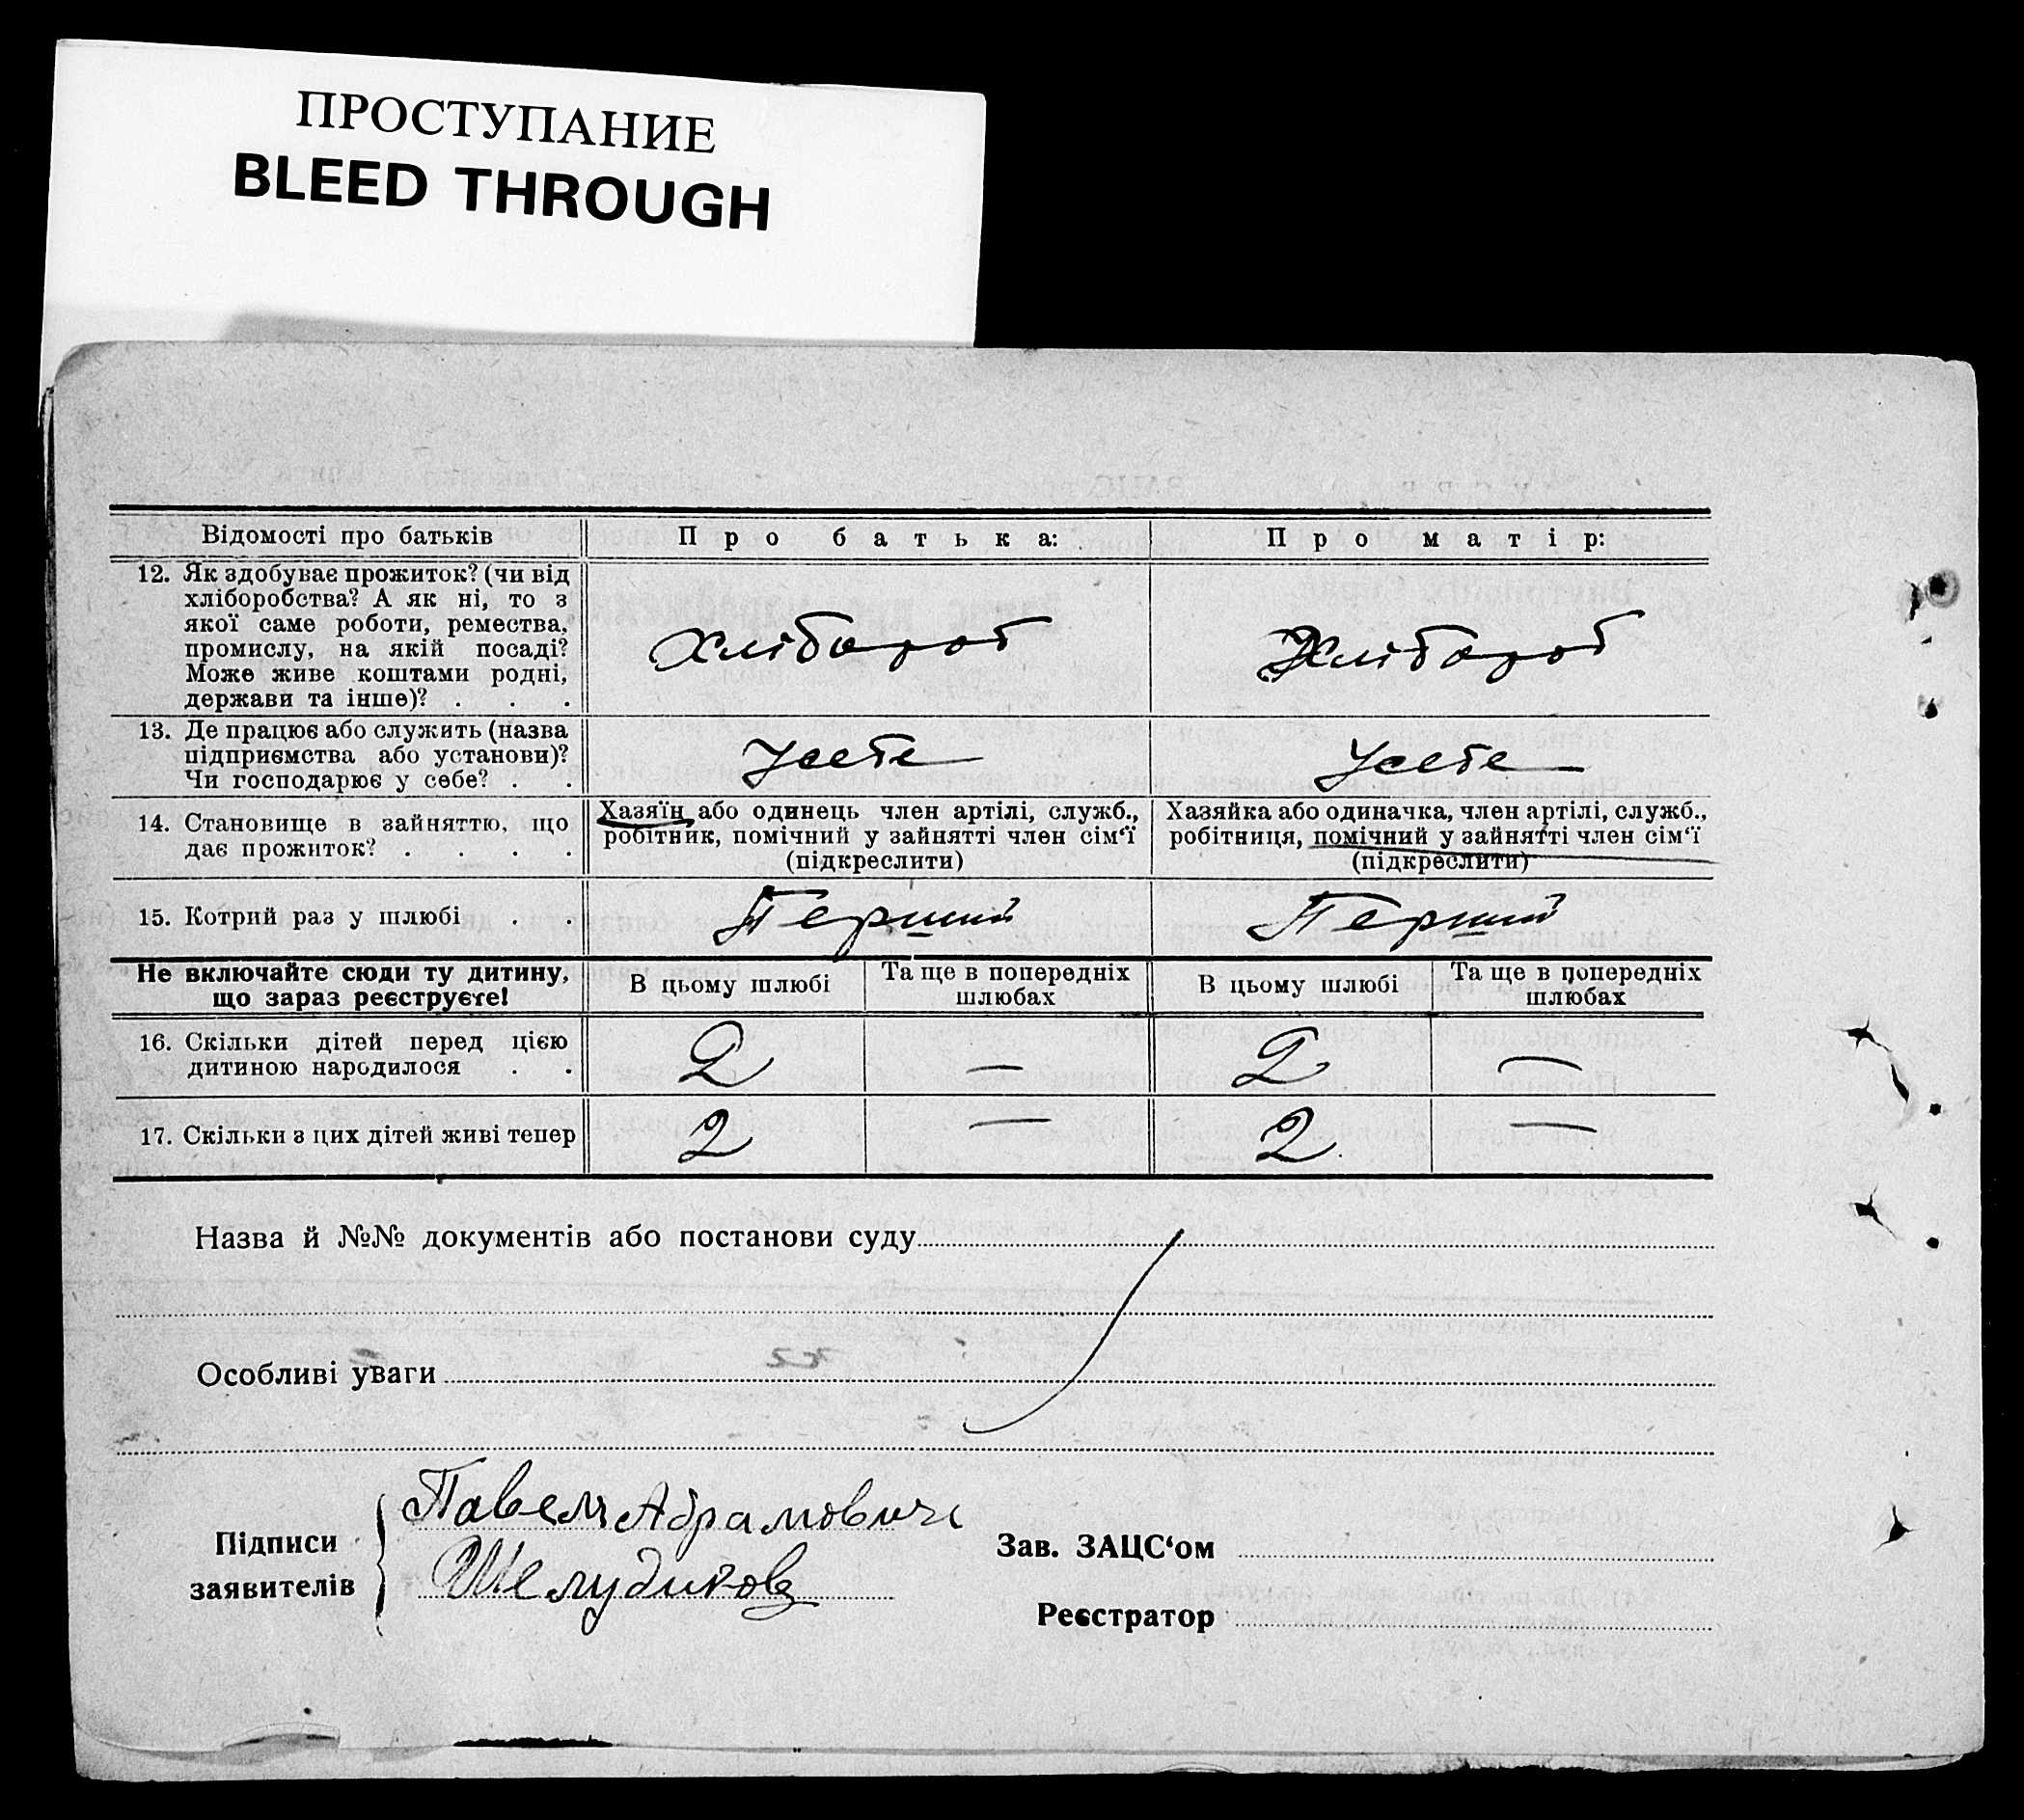 ПРОСТУПАНИЕ
BLEED THROUGH
Відомості про батьків
Про батька:
Про матір:
12. Як здобуває прожиток? (чи від
хліборобства? А як ні, то з
якої саме роботи, ремества,
промислу, на якій посаді?
Може живе коштами родні,
держави та інше)? . . .
Хлібороб
Хлібороб
13. Де працює або служить (назва
підприємства або установи)?
Чи господарює у себе? . .
Усебе
Усебе
14. Становище в зайняттю, що
дає прожиток? . . . .
Хазяїн або одинець член артілі, служб.,
робітник, помічний у зайнятті член сім‘ї
(підкреслити)
Хазяйка або одиначка, член артілі, служб.,
робітниця, помічний у зайнятті член сім‘ї
(підкреслити)
15. Котрий раз у шлюбі . .
Перший
Перший
Не включайте сюди ту дитину,
що зараз реєструєте!
В цьому шлюбі
Та ще в попередніх
шлюбах
В цьому шлюбі
Та ще в попередніх
шлюбах
16. Скільки дітей перед цією
дитиною народилося . .
2
—
2
—
17. Скільки з цих дітей живі тепер
2
—
2
—
Назва й №№ документів або постанови суду
Особливі уваги
Підписи
заявителів
Павел Абрамович
Шелудиков
Зав. ЗАЦС‘ом
Реєстратор